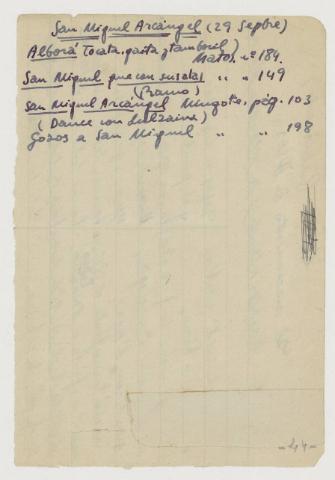 San Miguel Arcángel (29 Sepbre)
Alborá (tocata, gaita y tamboril)
Matos. nº 184.
San Miguel que con sus alas " " 149
(Ramo)
San Miguel Arcángel Mingote, pág. 103
(Dance con dulzaina)
Gozos a San Miguel " " 198
-44-